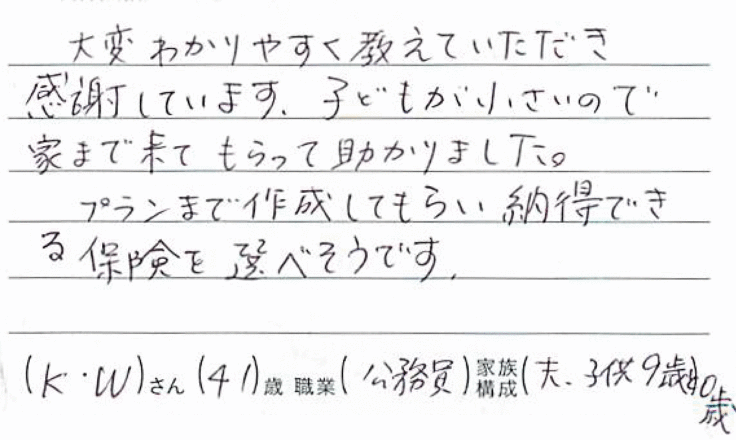 大変わかりやすく教えていただき
感謝しています。子どもが小さいので
家まで来てもらって助かりました。
プランまで作成してもらい納得でき
る保険を選べそうです。
(K・W)さん(41)歳 職業(公務員)家族構成(夫、子供9歳と0歳